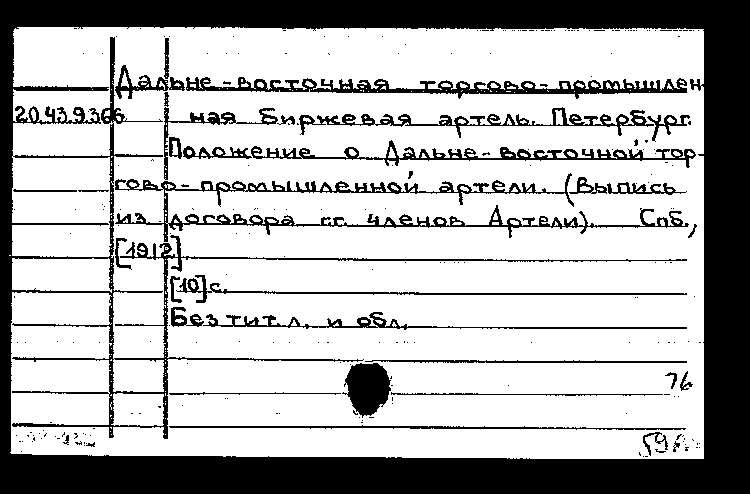 Дальне-восточная торгово-промышлен-
20.43.9.366 ная биржевая артель. Петербург.
Положение о Дальне-восточной тор-
гово-промышленной артели. (Выпись
из договора г.г. членов Артели). Спб.,
[1912].
[10] с.
Без тит. л. и обл.
76